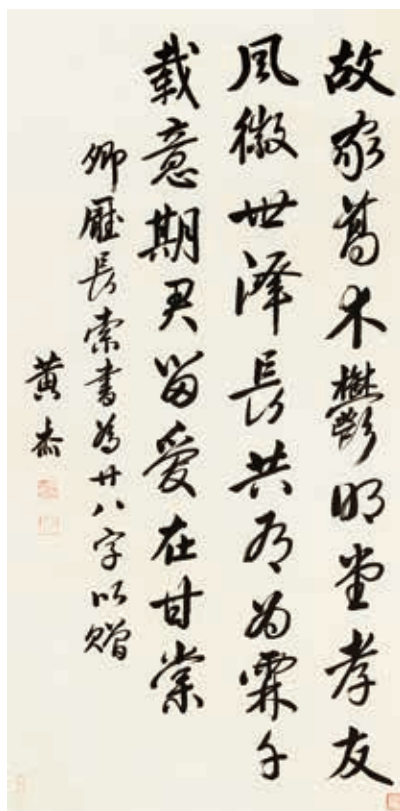 故家喬木鬱明堂孝友
風徽世澤長共有為霖千
載意期君留愛在甘棠
卿廳長索書為廿八字以贈
黃杰